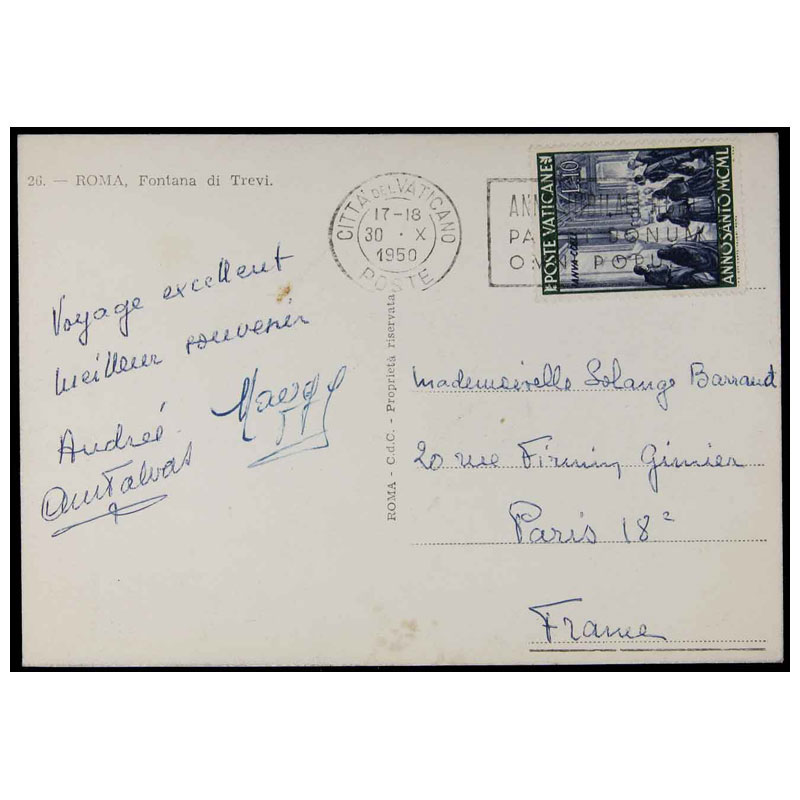 26. — ROMA, Fontana di Trevi.
CITTÀ DEL VATICANO
17-18
30 . X
1950
POSTE
POSTE VATICANE
L.10
ANNO SANTO MCML
PA DONUM
Voyage excellent
meilleur souvenir
André
ROMA - C.d.C. - Proprietà riservata
Mademoiselle Solange Barraut
20 rue Firmin Gémier
Paris 18e
France